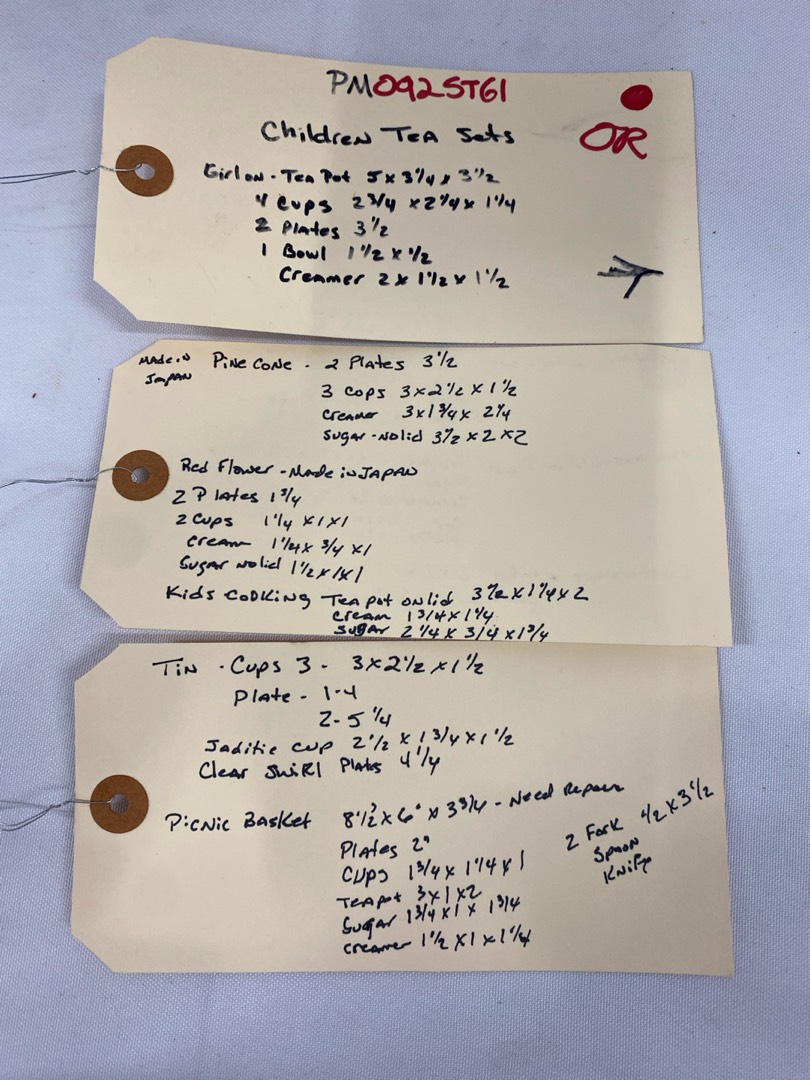 PM0925T61
OR
Children Tea Sets
Girl on - Tea Pot 5 x 3 1/4 x 3 1/2
4 Cups 2 3/4 x 2 1/4 x 1 1/4
2 Plates 3 1/2
1 Bowl 1 1/2 x 1/2
Creamer 2 x 1 1/2 x 1 1/2
Made in Japan
Pine Cone - 2 Plates 3 1/2
3 Cups 3 x 2 1/2 x 1 1/2
Creamer 3 x 1 3/4 x 2 1/4
Sugar - No lid 3 1/2 x 2 x 2
Red Flower - Made in JAPAN
2 Plates 1 3/4
2 Cups 1 1/4 x 1 x 1
Cream 1 1/4 x 3/4 x 1
Sugar no lid 1 1/2 x 1 x 1
Kids Cooking Tea pot on lid 3 1/2 x 1 1/4 x 2
Cream 1 3/4 x 1 1/4
Sugar 2 1/4 x 3/4 x 1 3/4
Tin - Cups 3 - 3 x 2 1/2 x 1 1/2
Plate - 1-4
2-5 1/4
Jaditie Cup 2 1/2 x 1 3/4 x 1 1/2
Clear Swirl Plates 4 1/4
Picnic Basket 8 1/2" x 6" x 3 3/4 - Need Repair
Plates 2"
Cups 1 3/4 x 1 1/4 x 1
Teapot 3 x 1 x 2
Sugar 1 3/4 x 1 x 1 3/4
Creamer 1 1/2 x 1 x 1 1/4
2 Fork 1/2 x 3 1/2
Spoon
Knife